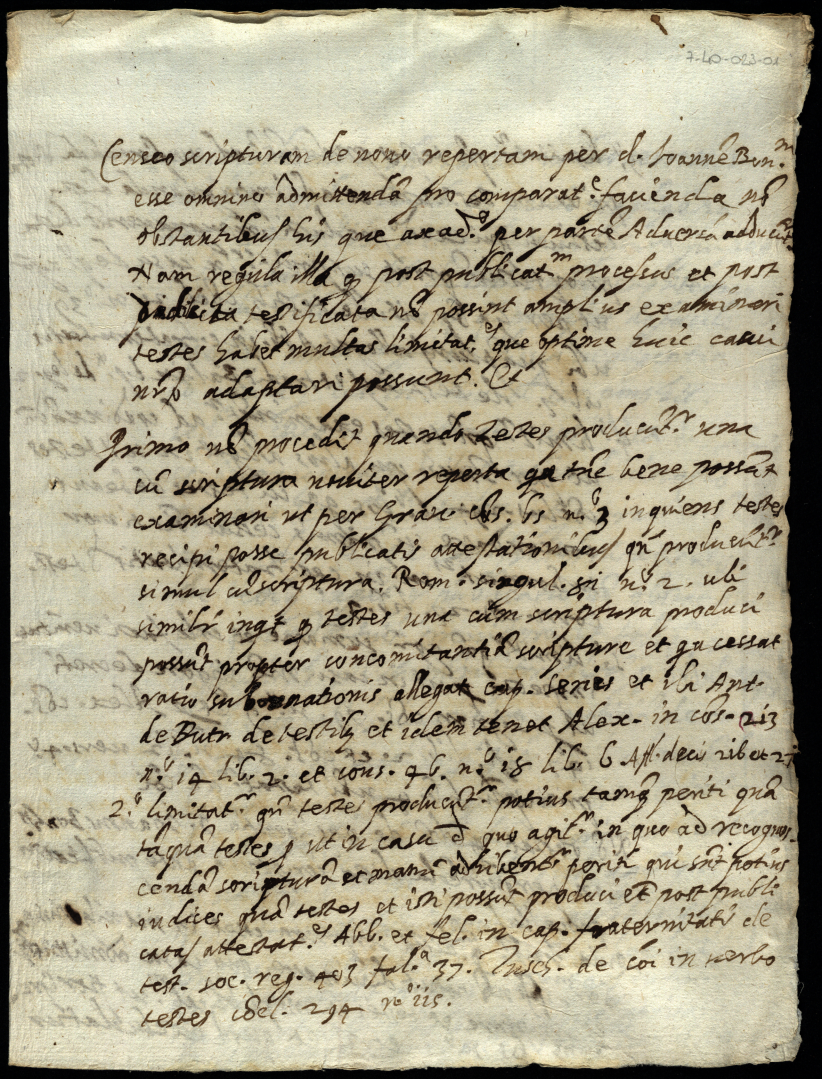 7-40-023-01
Censeo scripturam de novo repertam per d. Joannē Bon.m
esse omnino admittendā pro comparat.e facienda nō
obstantibus his que ex ad.o per partē Adversā adducūt.r
Nam regula illa q post publicat.m processus et post
testificata nō possint amplius examinari
testes habet multas limitat.es que optime huic casui
nrō adaptari possunt. Et
Primo nō procedit quando testes producūt.r una
cū scriptura noviter reperta qa tūc bene possūt
examinari ut per Grav. cōs. 65 n.o 3 inquiens testes
recipi posse publicatis attestationibus qn̄ producūt.r
simul cū scriptura. Rom. singul. n.o 2. ubi
similr inqt q testes una cum scriptura produci
possūt propter concomitantiā scripture et qa cessat
ratio subornationis allegat cap. series et ibi Ant.
de Butr. de testibq et idem tenet Alex. in cōs. 213
n.o 14 lib. 2. et cons. 46. n.o 18 lib. 6 Aff. decis 216 et 27
2.o limitat.r qn̄ testes producūt.r potius tamq periti quā
tāquā testes ut in casu d quo agit.r in quo ad recognos-
cendā scripturā et manū adhibent.r periti qui sūt potius
iudices quā testes et isti possūt produci etā post publi
catas attestat.es Abb. et fel. in cap. fraternitatis de
test. soc. reg. 403 fal.a 37. Tusch. de cōi in verbo
testes cōcl. 294 no iis.